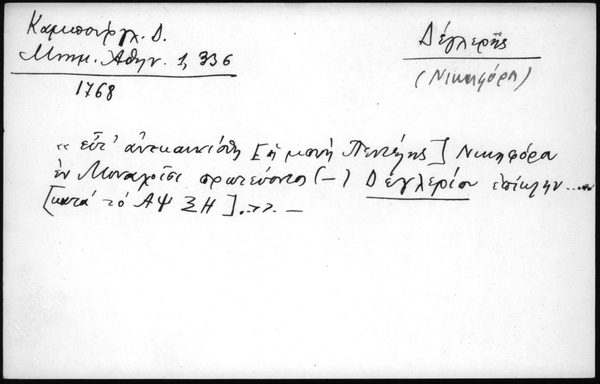 Καμπούρογλ. Δ.
Μνημ. Αθην. 1, 336
1768
Δέγλερης
(Νικηφόρα)
«εὖτ' ἀνεκαινίσθη [ἡ μονὴ Πεντέλης] Νικηφόρα
ἐν Μοναχοῖσι πρωτεύοντος (-) Δέγλερίου ἐπίκλην.....
[κατά τό ΑΨΞΗ].»». —